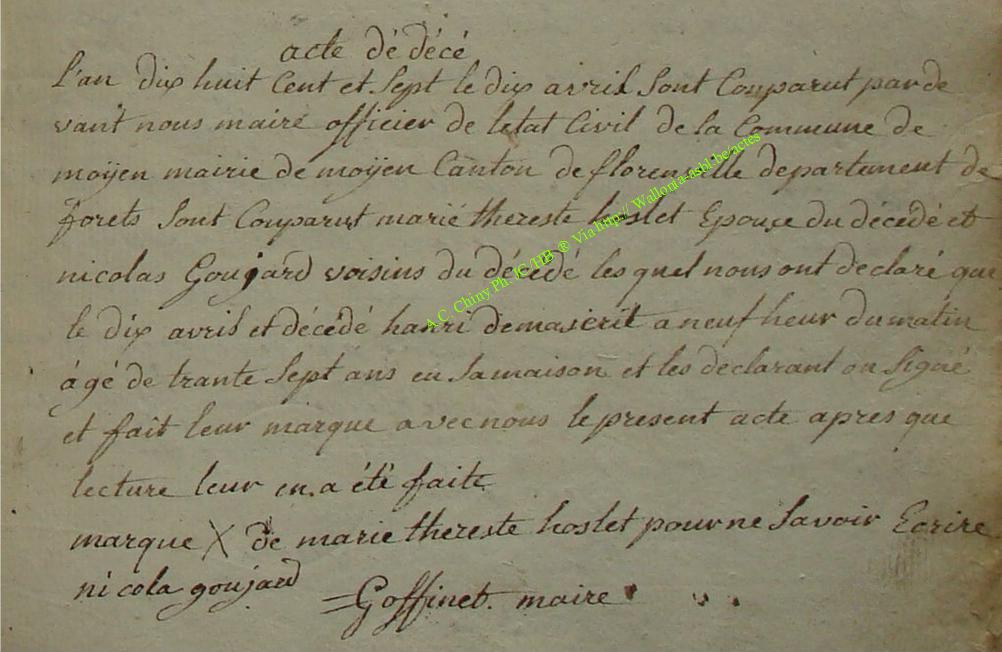 acte dé décé
l'an dix huit Cent et Sept le dix avril Sont Couparut par de
vant nous maire officier de letat Civil de la Commune de
moÿen mairie de moÿen Canton de florenville departement de
forets Sont Couparut marié thereste hoslet Epouse du décedé et
nicolas Goujard voisins du décedé les quel nous ont declaré que
le dix avril et décedé hanri demasicrit a neuf heur du matin
âgé de trante Sept ans en Samaison et les declarant on Signé
et fait leur marque avec nous le present acte apres que
lecture leur en a été faite
marque X de marie thereste hoslet pour ne Savoir Ecrire
nicola goujard
=Goffinet. maire
A.C. Chiny Ph. JC/HB ® Via http// Wallonia-asbl.be/actes